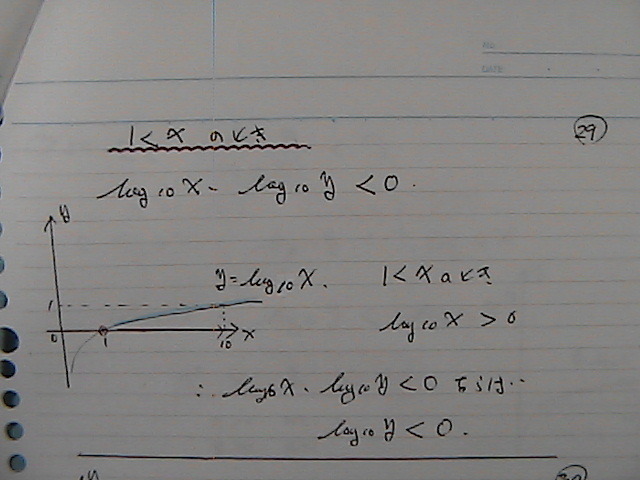 NO.
DATE
29
1 < x のとき
log₁₀x・log₁₀y < 0.
y
y = log₁₀x. 1 < x のとき
1
log₁₀x > 0
0 1 10 x
∴ log₁₀x・log₁₀y < 0 ならば‥
log₁₀y < 0.